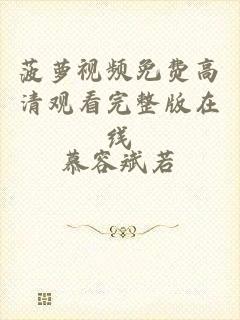 菠萝视频免费高
清观看完整版在
线
慕容斌若